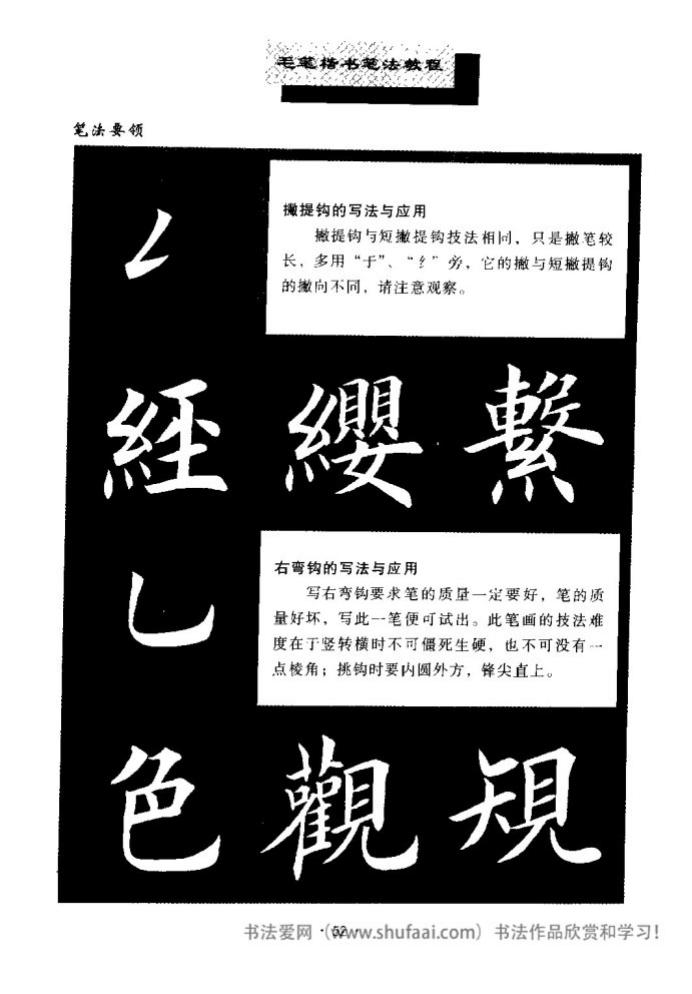 毛笔楷书笔法教程
笔法要领
撇提钩的写法与应用
撇提钩与短撇提钩技法相同，只是撇笔较
长，多用“于”、“纟”旁，它的撇与短撇提钩
的撇向不同，请注意观察。
經 纓 繫
右弯钩的写法与应用
写右弯钩要求笔的质量一定要好，笔的质
量好坏，写此一笔便可试出。此笔画的技法难
度在于竖转横时不可僵死生硬，也不可没有一
点棱角；挑钩时要内圆外方，锋尖直上。
色 觀 規
·52·
书法爱网（www.shufaai.com）书法作品欣赏和学习！